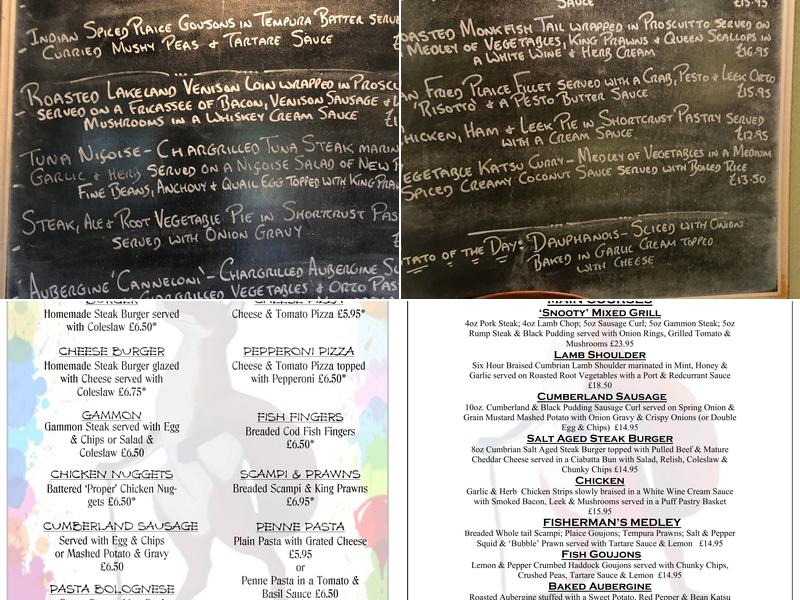 INDIAN SPICED PLAICE GOUJONS IN TEMPURA BATTER SERVE
CURRIED MUSHY PEAS & TARTARE SAUCE
ROASTED LAKELAND VENISON LOIN WRAPPED IN PROSC
SERVED ON A FRICASSEE OF BACON, VENISON SAUSAGE &
MUSHROOMS IN A WHISKEY CREAM SAUCE
TUNA NIÇOISE - CHARGRILLED TUNA STEAK MARIN
GARLIC & HERB SERVED ON A NIÇOISE SALAD OF NEW P
FINE BEANS, ANCHOVY & QUAIL EGG TOPPED WITH KING PRAW
STEAK, ALE & ROOT VEGETABLE PIE IN SHORTCRUST PAS
SERVED WITH ONION GRAVY
AUBERGINE 'CANNELONI' - CHARGRILLED AUBERGINE SL
CHARGRILLED VEGETABLES & ORZO PAST
SAUCE £15.95
OASTED MONKFISH TAIL WRAPPED IN PROSCUITTO SERVED ON
MEDLEY OF VEGETABLES, KING PRAWNS & QUEEN SCALLOPS IN
A WHITE WINE & HERB CREAM £16.95
AN FRIED PLAICE FILLET SERVED WITH A CRAB, PESTO & LEEK ORZO
'RISOTTO' & A PESTO BUTTER SAUCE £15.95
HICKEN, HAM & LEEK PIE IN SHORTCRUST PASTRY SERVED
WITH A CREAM SAUCE £12.95
EGETABLE KATSU CURRY - MEDLEY OF VEGETABLES IN A MEDIUM
SPICED CREAMY COCONUT SAUCE SERVED WITH BOILED RICE
£13.50
TATO OF THE DAY: DAUPHANOIS - SLICED WITH ONION
BAKED IN GARLIC CREAM TOPPED
WITH CHEESE
BURGER
Homemade Steak Burger served
with Coleslaw £6.50*
CHEESE BURGER
Homemade Steak Burger glazed
with Cheese served with
Coleslaw £6.75*
GAMMON
Gammon Steak served with Egg
& Chips or Salad &
Coleslaw £6.50
CHICKEN NUGGETS
Battered 'Proper' Chicken Nug-
gets £6.50*
CUMBERLAND SAUSAGE
Served with Egg & Chips
or Mashed Potato & Gravy
£6.50
PASTA BOLOGNESE
CHEESE PIZZA
Cheese & Tomato Pizza £5.95*
PEPPERONI PIZZA
Cheese & Tomato Pizza topped
with Pepperoni £6.50*
FISH FINGERS
Breaded Cod Fish Fingers
£6.50*
SCAMPI & PRAWNS
Breaded Scampi & King Prawns
£6.95*
PENNE PASTA
Plain Pasta with Grated Cheese
£5.95
or
Penne Pasta in a Tomato &
Basil Sauce £6.50
MAIN COURSES
'SNOOTY' MIXED GRILL
4oz Pork Steak; 4oz Lamb Chop; 5oz Sausage Curl; 5oz Gammon Steak; 5oz
Rump Steak & Black Pudding served with Onion Rings, Grilled Tomato &
Mushrooms £23.95
LAMB SHOULDER
Six Hour Braised Cumbrian Lamb Shoulder marinated in Mint, Honey &
Garlic served on Roasted Root Vegetables with a Port & Redcurrant Sauce
£18.50
CUMBERLAND SAUSAGE
10oz. Cumberland & Black Pudding Sausage Curl served on Spring Onion &
Grain Mustard Mashed Potato with Onion Gravy & Crispy Onions (or Double
Egg & Chips) £14.95
SALT AGED STEAK BURGER
8oz Cumbrian Salt Aged Steak Burger topped with Pulled Beef & Mature
Cheddar Cheese served in a Ciabatta Bun with Salad, Relish, Coleslaw &
Chunky Chips £14.95
CHICKEN
Garlic & Herb Chicken Strips slowly braised in a White Wine Cream Sauce
with Smoked Bacon, Leek & Mushrooms served in a Puff Pastry Basket
£15.95
FISHERMAN'S MEDLEY
Breaded Whole tail Scampi; Plaice Goujons; Tempura Prawns; Salt & Pepper
Squid & 'Bubble' Prawn served with Tartare Sauce & Lemon £14.95
FISH GOUJONS
Lemon & Pepper Crumbed Haddock Goujons served with Chunky Chips,
Crushed Peas, Tartare Sauce & Lemon £14.95
BAKED AUBERGINE
Roasted Aubergine stuffed with a Sweet Potato, Red Pepper & Bean Katsu